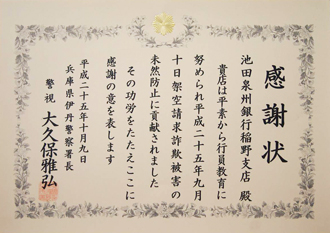 感謝状
池田泉州銀行稲野支店 殿
貴店は平素から行員教育に
努められ平成二十五年九月
十日架空請求詐欺被害の
未然防止に貢献されました
その功労をたたえここに
感謝の意を表します
平成二十五年十月九日
兵庫県伊丹警察署長
警視 大久保雅弘